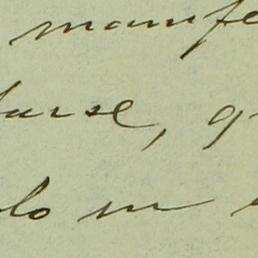 manife
urse, q
lo un